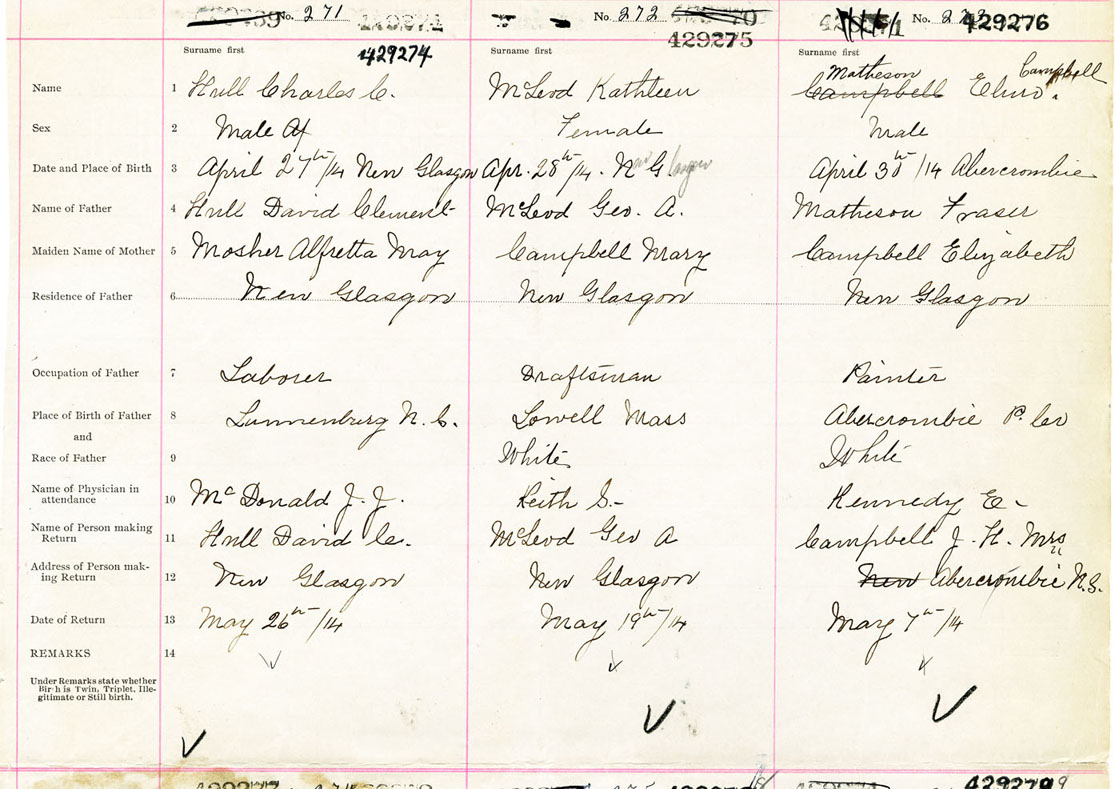 No. 271
No. 272
No.
429274
429275
429276
Surname first
Surname first
Surname first
Matheson
Campbell
Name 1 Hull Charles C. McLeod Kathleen Campbell
Sex 2 Male Female Male
Date and Place of Birth 3 April 27th/14 New Glasgow Apr. 28th/14. N G April 30th/14 Abercrombie
Name of Father 4 Hull David Clement McLeod Geo. A. Matheson Fraser
Maiden Name of Mother 5 Mosher Alfretta May Campbell Mary Campbell Elizabeth
Residence of Father 6 New Glasgow New Glasgow New Glasgow
Occupation of Father 7 Laborer Draftsman Painter
Place of Birth of Father 8 Lunnenburg N.S. Lowell Mass Abercrombie P. Co
and
Race of Father 9 White White
Name of Physician in
attendance 10 McDonald J. J. Keith S. Kennedy E
Name of Person making
Return 11 Hull David C. McLeod Geo A Campbell J. H. Mrs
Address of Person mak-
ing Return 12 New Glasgow New Glasgow New Abercrombie N.S.
Date of Return 13 May 26th/14 May 19th/14 May 7th/14
REMARKS 14
Under Remarks state whether
Birth is Twin, Triplet, Ille-
gitimate or Still birth.
429279